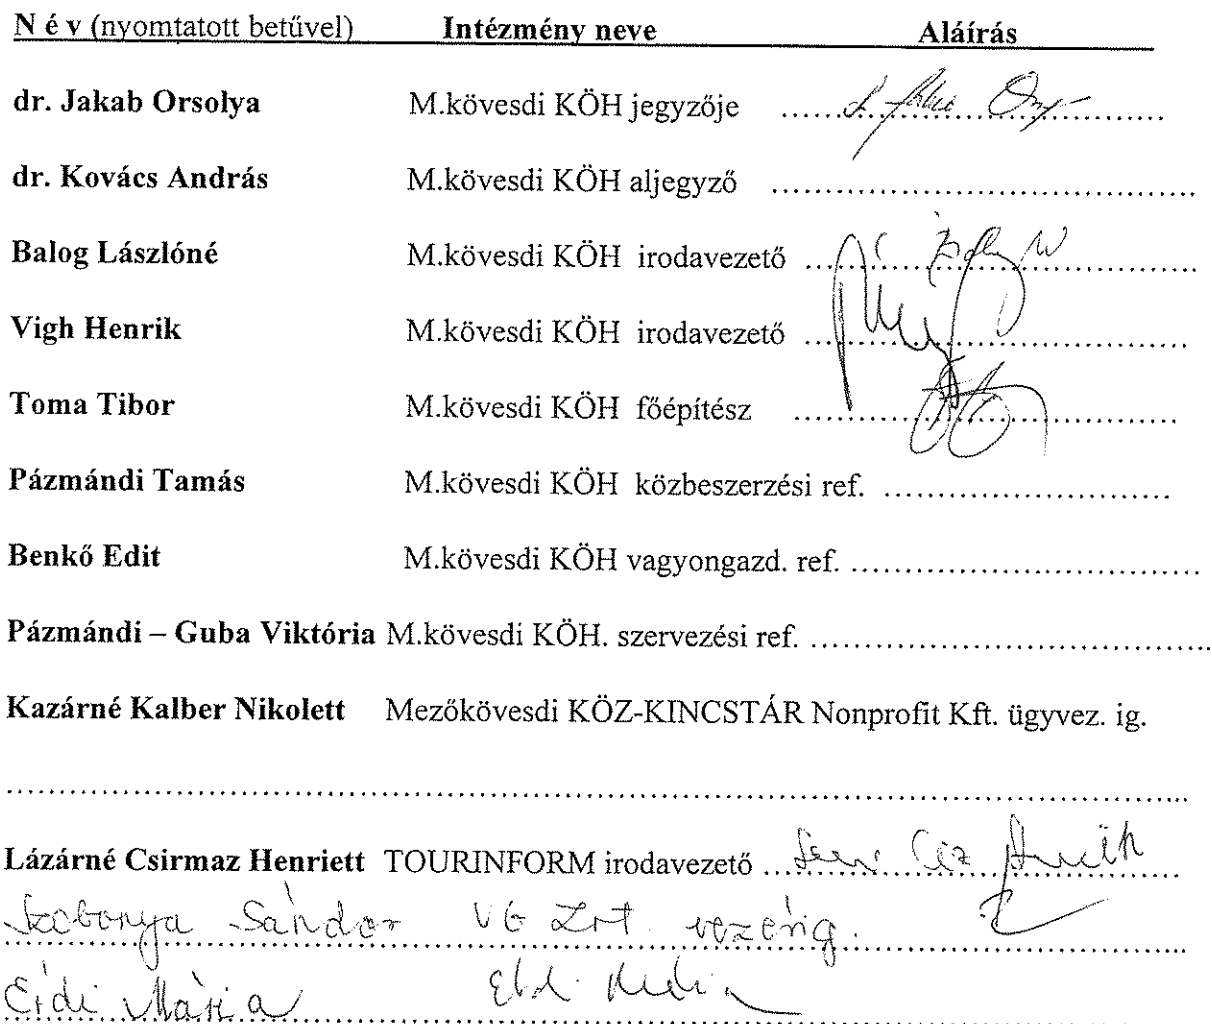 N é v (nyomtatott betűvel) Intézmény neve Aláírás
dr. Jakab Orsolya M.kövesdi KÖH jegyzője ....................................
dr. Kovács András M.kövesdi KÖH aljegyző ....................................
Balog Lászlóné M.kövesdi KÖH irodavezető ....................................
Vigh Henrik M.kövesdi KÖH irodavezető ....................................
Toma Tibor M.kövesdi KÖH főépítész ....................................
Pázmándi Tamás M.kövesdi KÖH közbeszerzési ref. ..........................
Benkő Edit M.kövesdi KÖH vagyongazd. ref. ................................
Pázmándi – Guba Viktória M.kövesdi KÖH. szervezési ref. ....................................
Kazárné Kalber Nikolett Mezőkövesdi KÖZ-KINCSTÁR Nonprofit Kft. ügyvez. ig.
....................................................................................................
Lázárné Csirmaz Henriett TOURINFORM irodavezető ....................................
Szobonya Sándor VG Zrt. vezérig.
Érdi Mária